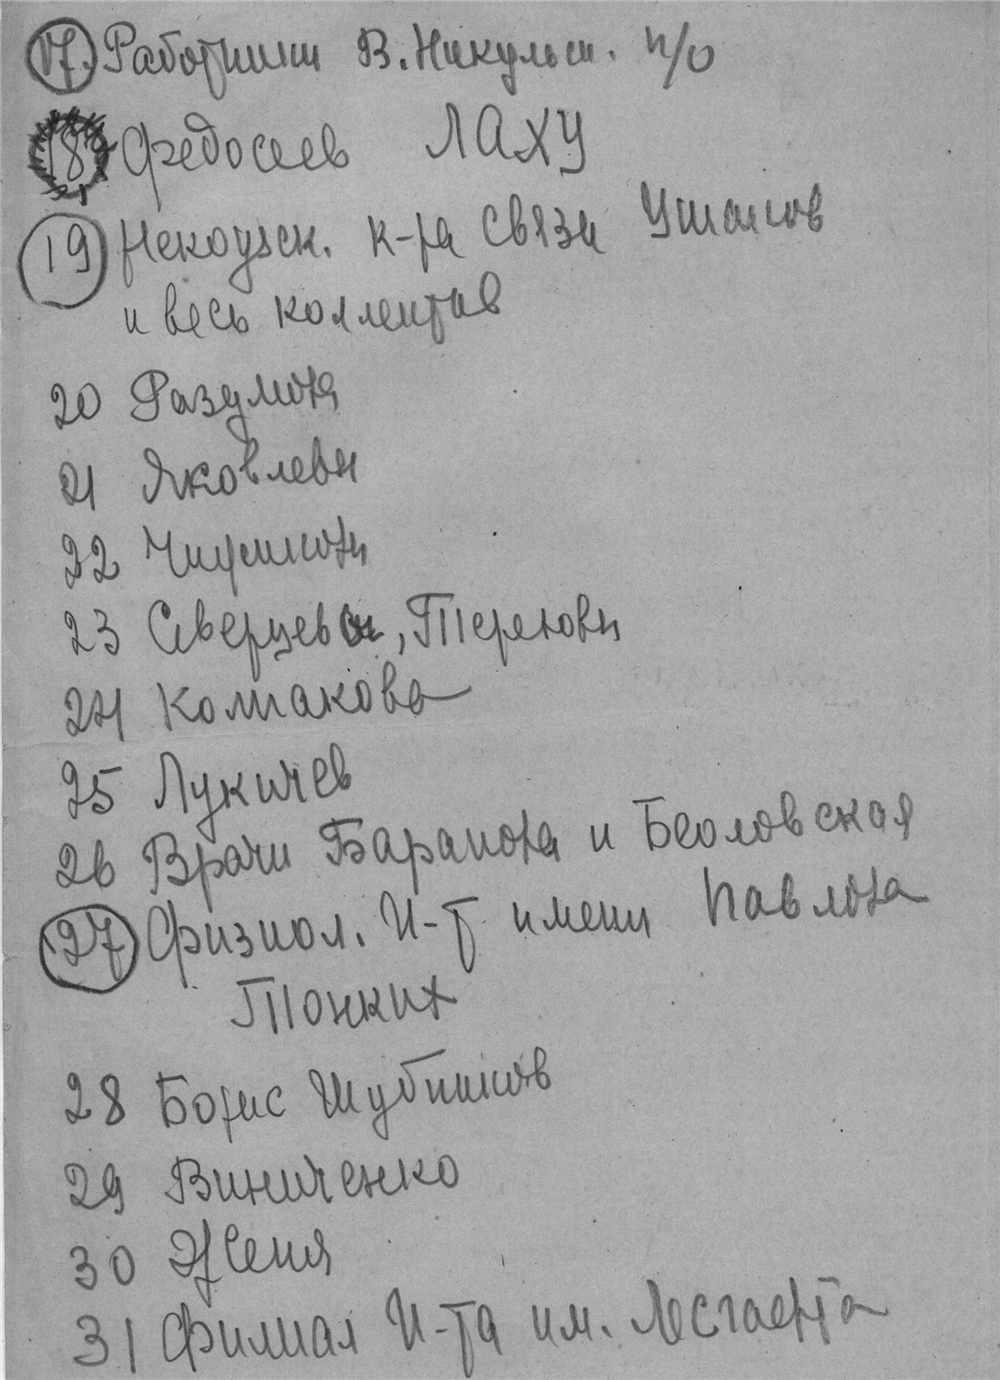 17. Работники В. Никульск. п/о
18, Федосеев ЛАХУ
19 Некоузск. к-ра связи Ушаков
и весь коллектив
20 Разумова
21 Яковлевы
22
23 Северцевы, Тереховы
24 Колпакова
25 Лукичев
26 Врачи Баранова и Беоловская
27 Физиол. И-т имени Павлова
Тонких
28 Борис Шубников
29 Виниченко
30 Женя
31 Филиал И-та им. Лесгафта